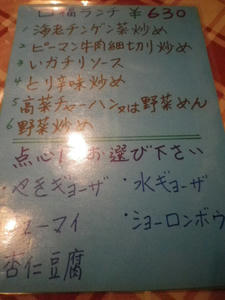 口福ランチ ¥630
1 海老チンゲン菜炒め
2 ピーマン牛肉細切り炒め
3 いかチリソース
4 とり辛味炒め
5 高菜チャーハン又は野菜めん
6 野菜炒め
点心 お選び下さい
・やきギョーザ ・水ギョーザ
ューマイ ・ショーロンポウ
杏仁豆腐